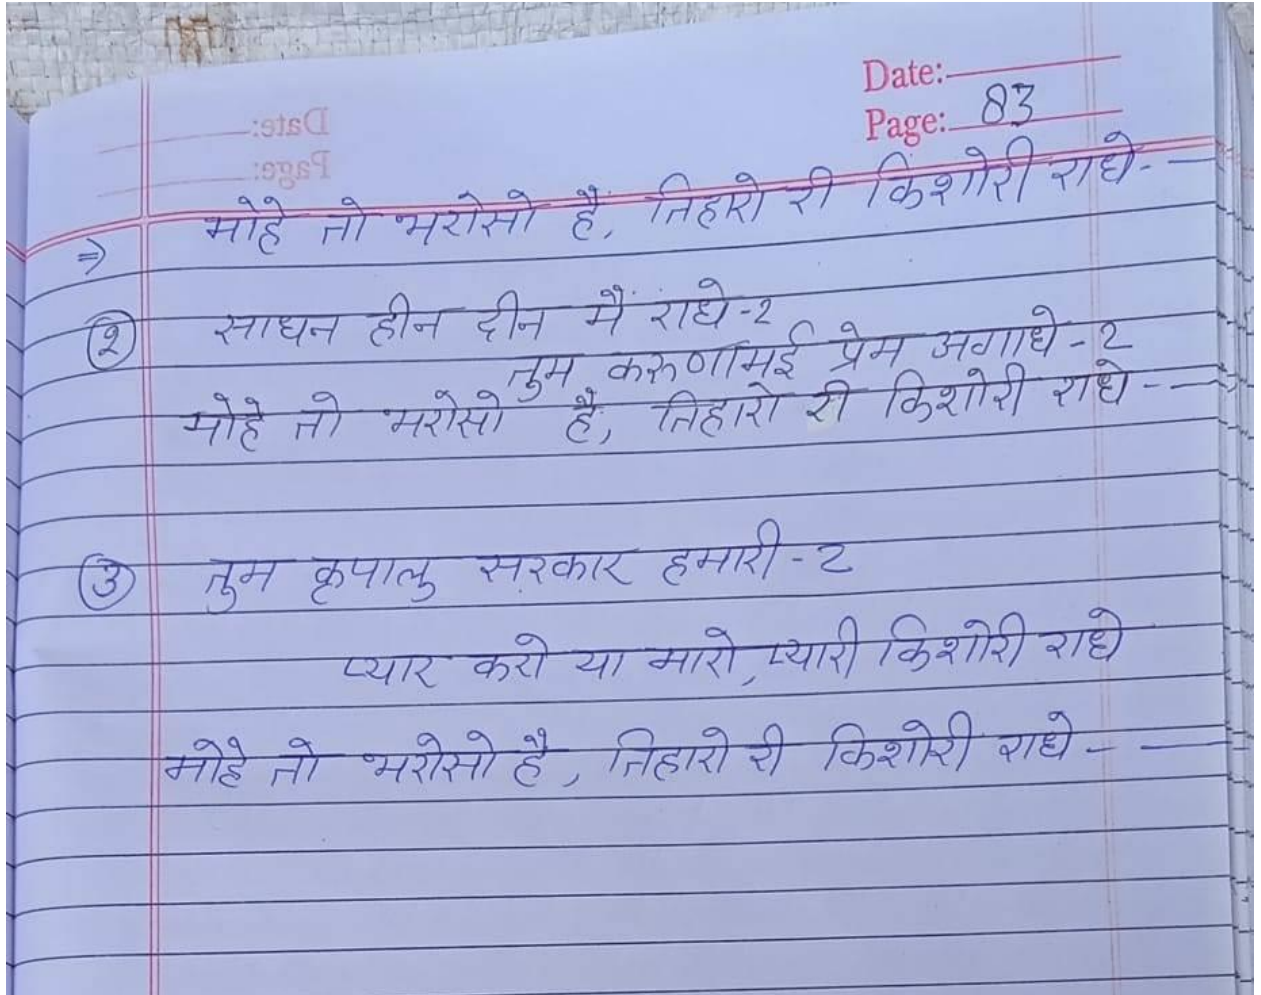 Date:
Page: 83
⇒ मोहे तो भरोसो है, तिहारो री किशोरी राधे- —
② साधन हीन दीन मैं राधे-२
तुम करुणामई प्रेम अगाधे-२
मोहे तो भरोसो है, तिहारो री किशोरी राधे- —
③ तुम कृपालु सरकार हमारी-२
प्यार करो या मारो, प्यारी किशोरी राधे
मोहे तो भरोसो है, तिहारो री किशोरी राधे- —